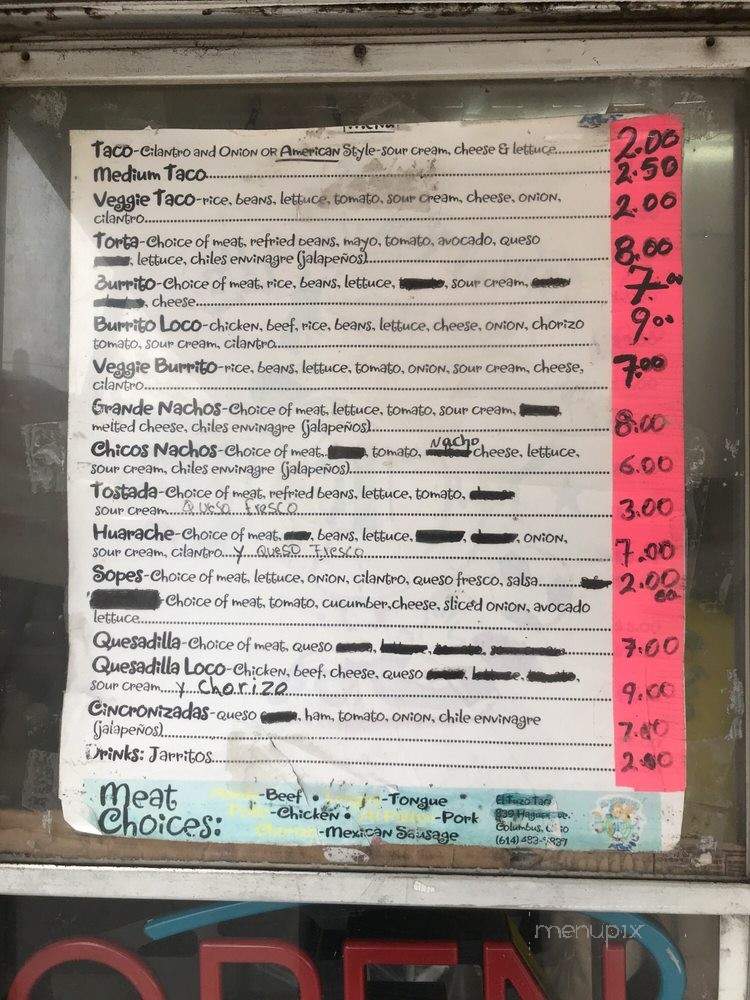 Menu
Taco-Cilantro and Onion OR American Style-sour cream, cheese & lettuce 2.00
Medium Taco 2.50
Veggie Taco-rice, beans, lettuce, tomato, sour cream, cheese, onion, 2.00
cilantro
Torta-Choice of meat, refried beans, mayo, tomato, avocado, queso
, lettuce, chiles envinagre (jalapeños) 8.00
Burrito-Choice of meat, rice, beans, lettuce, , sour cream, 7.00
, cheese
Burrito Loco-chicken, beef, rice, beans, lettuce, cheese, onion, chorizo 9.00
tomato, sour cream, cilantro
Veggie Burrito-rice, beans, lettuce, tomato, onion, sour cream, cheese, 7.00
cilantro
Grande Nachos-Choice of meat, lettuce, tomato, sour cream, ,
melted cheese, chiles envinagre (jalapeños) 8.00
Chicos Nachos-Choice of meat, , tomato, Nacho cheese, lettuce,
sour cream, chiles envinagre (jalapeños) 6.00
Tostada-Choice of meat, refried beans, lettuce, tomato,
sour cream Queso Fresco 3.00
Huarache-Choice of meat, , beans, lettuce, , , onion,
sour cream, cilantro y Queso Fresco 7.00
Sopes-Choice of meat, lettuce, onion, cilantro, queso fresco, salsa 2.00
-Choice of meat, tomato, cucumber, cheese, sliced onion, avocado
lettuce
Quesadilla-Choice of meat, queso 7.00
Quesadilla Loco-Chicken, beef, cheese, queso
sour cream y Chorizo 9.00
Cincronizadas-queso , ham, tomato, onion, chile envinagre
(jalapeños) 7.00
Drinks: Jarritos 2.00
Meat Choices:
-Beef • -Tongue
-Chicken • Al Pastor-Pork
Chorizo-Mexican Sausage
Columbus,
(614) 483-
OPEN
menupix